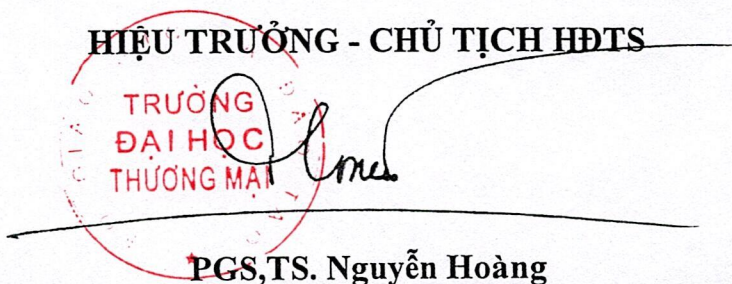 HIỆU TRƯỞNG - CHỦ TỊCH HĐTS
TRƯỜNG
ĐẠI HỌC
THƯƠNG MẠI
PGS,TS. Nguyễn Hoàng